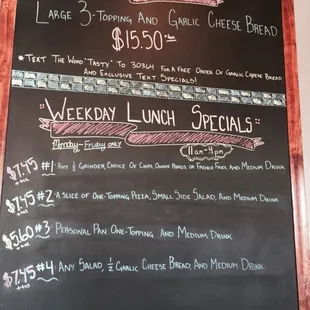 Large 3-Topping And Garlic Cheese Bread
$15.50 +tax
*Text The Word "Tasty" To 30364 For A Free Order Of Garlic Cheese Bread
And Exclusive Text Specials!
"Weekday Lunch Specials"
Monday-Friday only
11am-4pm
$7.45 +tax #1: Any ½ Grinder, Choice Of Chips, Onion Rings, or French Fries, And Medium Drink
$7.45 +tax #2: A slice of one-Topping Pizza, Small Side Salad, And Medium Drink
$5.60 +tax #3 Personal Pan One-Topping And Medium Drink
$7.45 +tax #4: Any Salad, ½ Garlic Cheese Bread, And Medium Drink